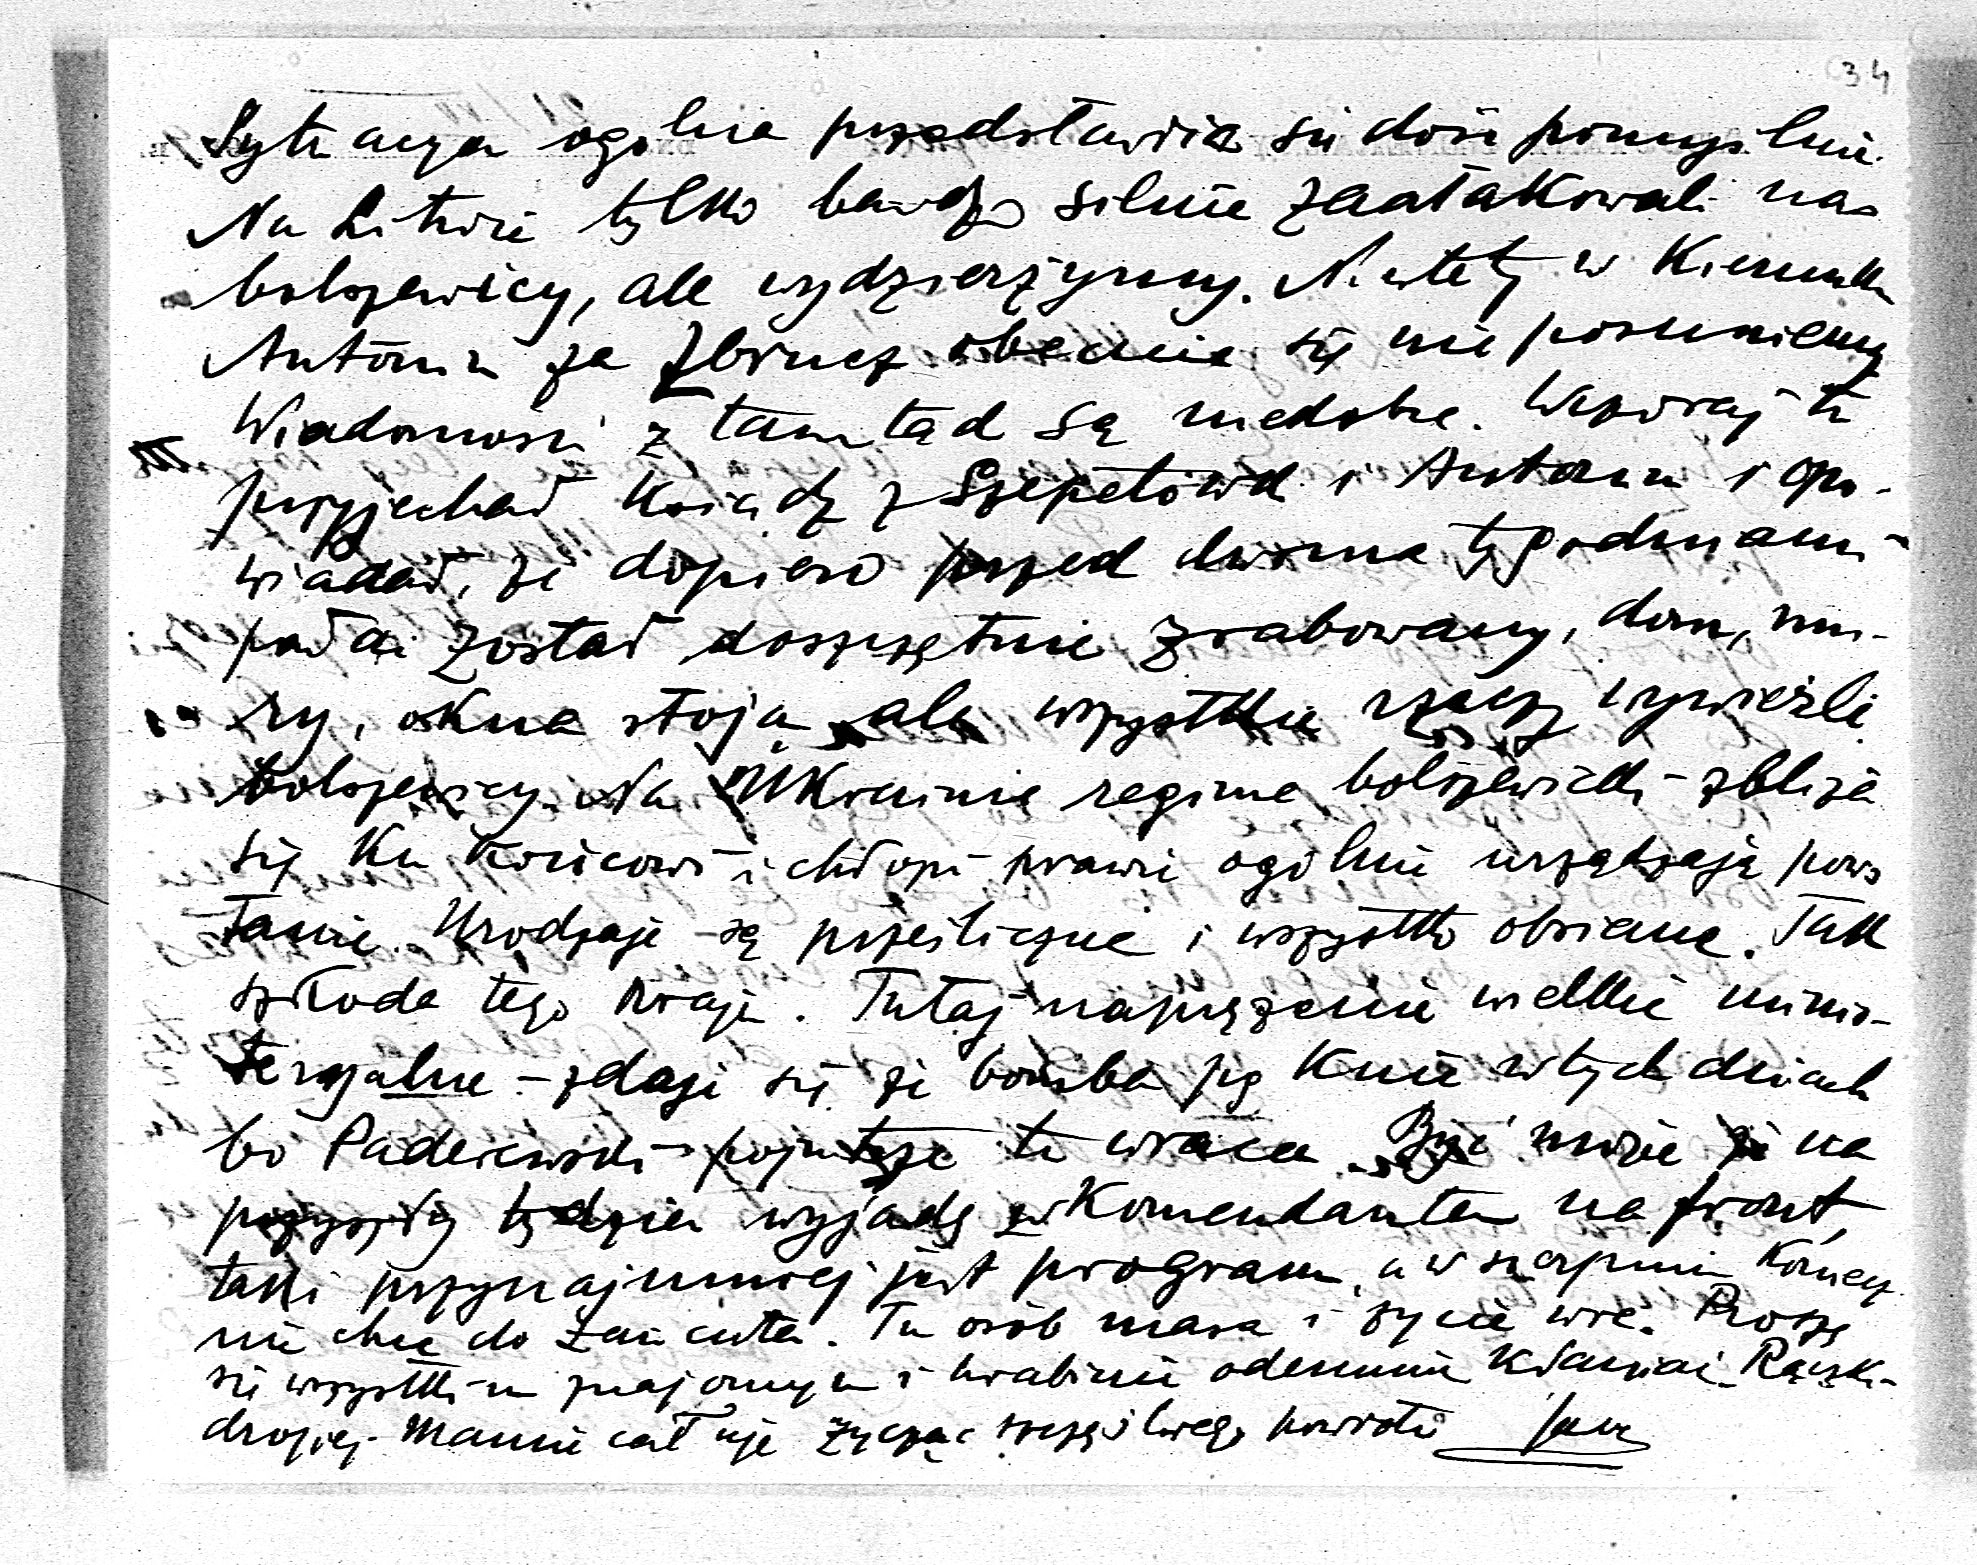 34
Sytuacya ogólna przedstawia się dość pomyślnie.
Na Litwie tylko bardzo silnie zaatakowali nas
bolszewicy, ale wydzierżymy. Niestety w kierunku
Antonin za Zbrucz obecnie się nie posuniemy
Wiadomości z tamtąd są niedobre. Wczoraj tu
przyjechał ksiądz z Szepetówki i Antonin i opo-
wiadał, że dopiero przed dwoma tygodniami
pałac został doszczętnie zrabowany, dom, mu-
ry, okna stoją ale wszystkie rzeczy wywieźli
bolszewicy. Na Ukrainie regime bolszewicki zbliża
się ku końcowi i chłopi prawie ogólnie urządzają pows
tanie. Urodzaje są prześliczne i wszystko obsiane. Tak
szkoda tego kraju. Tutaj naprężenie wielkie minis-
teryalne – zdaje się że bomba pęknie w tych dniach
bo Paderewski pojutrze tu wraca. Być może że na
przyszły tydzień wyjadę z Komendantem na front,
taki przynajmniej jest program, a w sierpniu koniecz
nie chcę do Łańcuta. Tu osób masa i życie wre. Proszę
się wszystkim znajomym i hrabinie odemnie kłaniać. Rączki
drogiej Mamie całuję życząc szczęśliwego powrotu